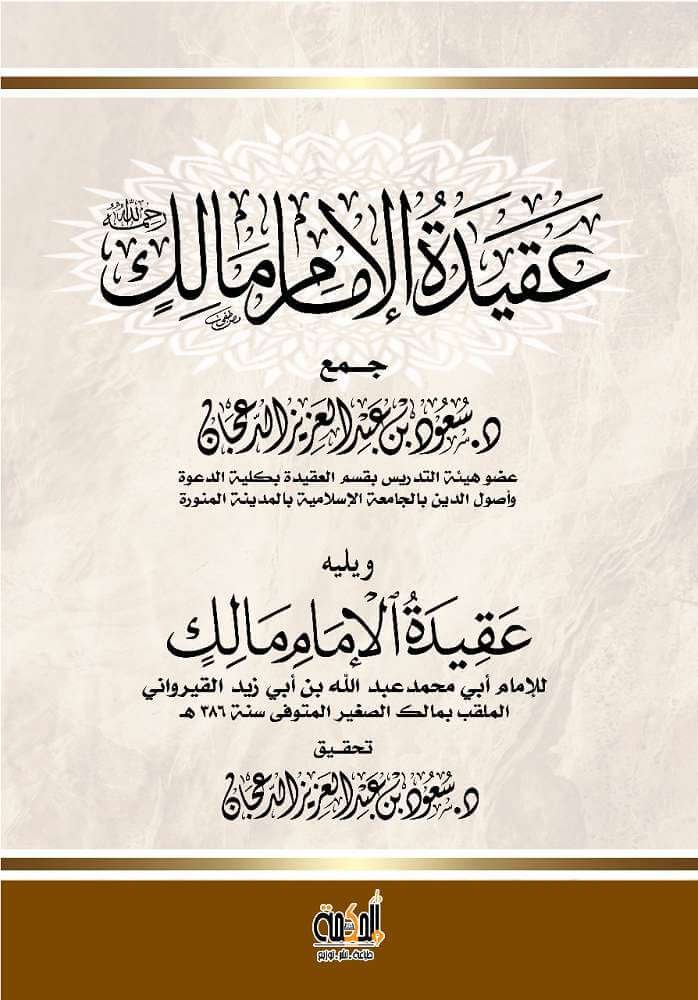 عَقِيدَةُ الإمَامِ مَالِكٍ
رَحِمَهُ اللَّهُ
جـمـع
د. سُعُود بْن عَبْدِ العَزِيز الدَّعْجَان
عضو هيئة التدريس بقسم العقيدة بكلية الدعوة
وأصول الدين بالجامعة الإسلامية بالمدينة المنورة
ويليه
عَقِيدَةُ الإِمَامِ مَالِكٍ
للإمام أبي محمد عبد الله بن أبي زيد القيرواني
الملقب بمالك الصغير المتوفى سنة ٣٨٦ هـ
تحقيق
د. سُعُود بْن عَبْدِ العَزِيز الدَّعْجَان
الحكمة
طباعة . نشر . توزيع